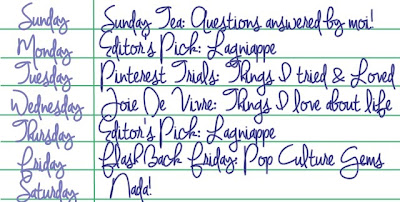 Sunday Sunday Tea: Questions answered by moi!
Monday Editor's Pick: Lagniappe
Tuesday Pinterest Trials: Things I tried & Loved
Wednesday Joie De Vivre: Things I love about life
Thursday Editor's Pick: Lagniappe
Friday FlashBack Friday: Pop Culture Gems
Saturday Nada!